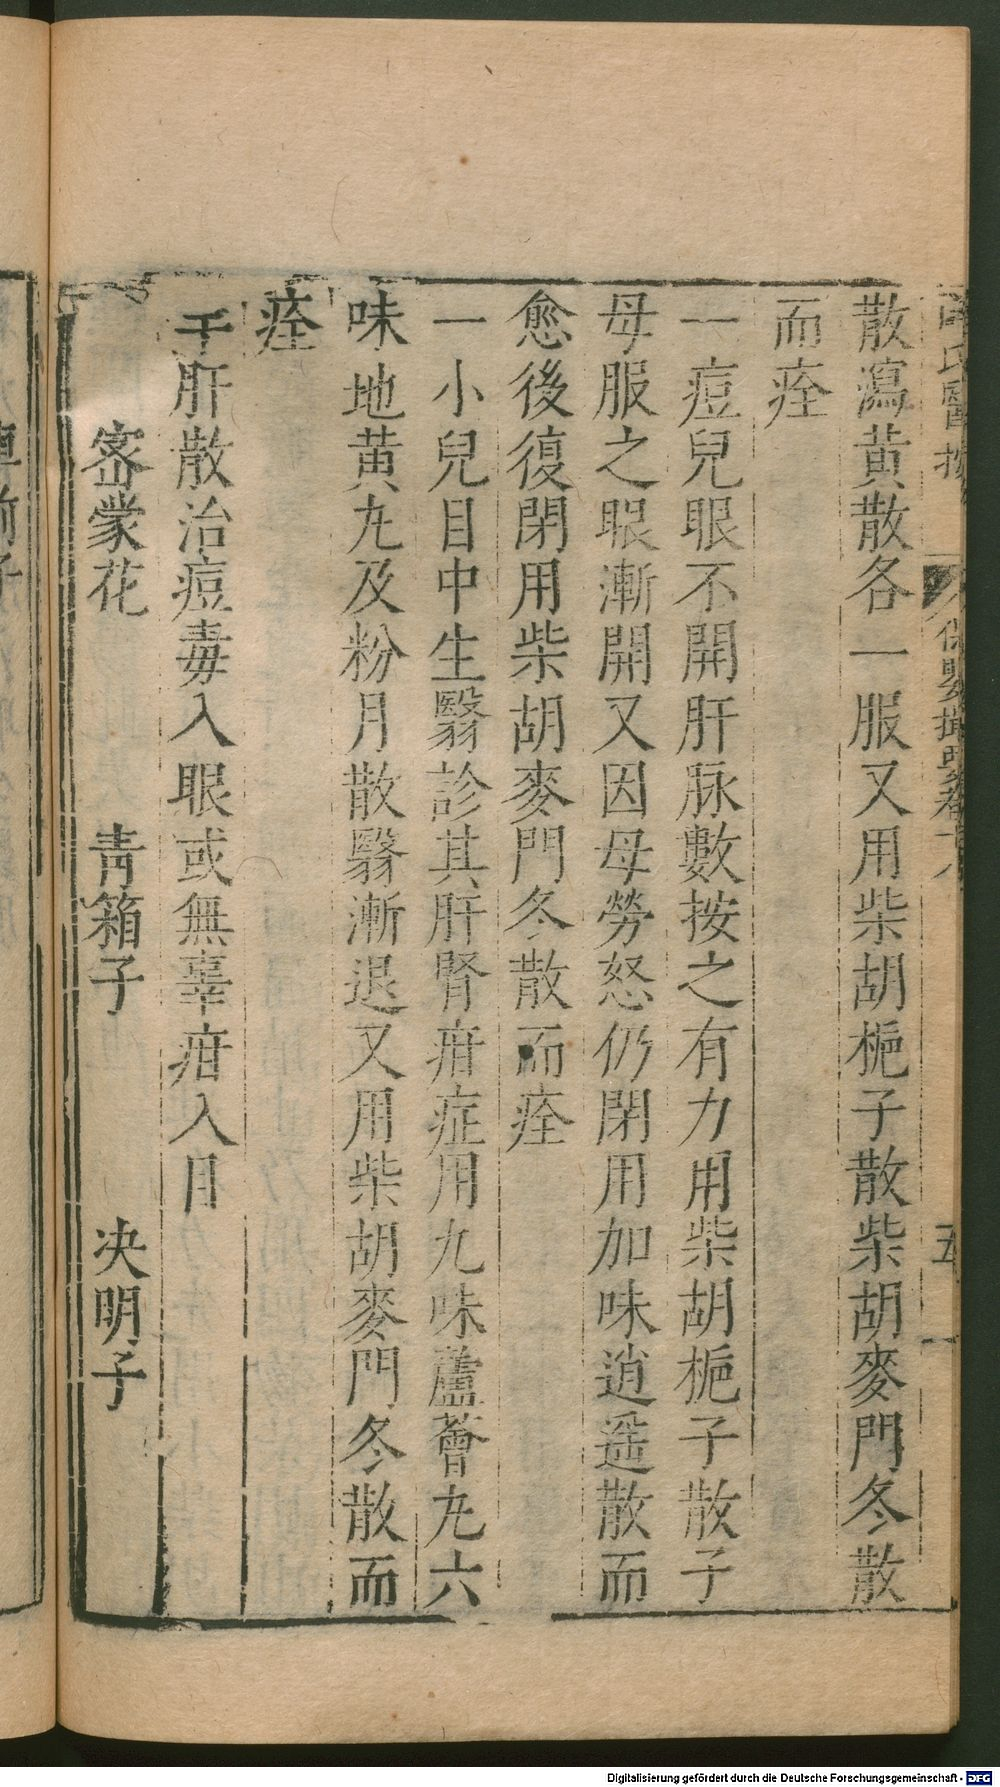 散瀉黃散各一服又用柴胡梔子散柴胡麥門冬散
而痊
一痘兒眼不開肝脉數按之有力用柴胡梔子散子
母服之眼漸開又因母勞怒仍閉用加味逍遥散而
愈後復閉用柴胡麥門冬散而痊
一小兒目中生翳診其肝腎疳症用九味蘆薈丸六
味地黄丸及粉月散翳漸退又用柴胡麥門冬散而
痊
羊肝散治痘毒入眼或無辜疳入目
密蒙花 青箱子 决明子
氏醫按 保嬰撮要卷十八 五
Digitalisierung gefördert durch die Deutsche Forschungsgemeinschaft - DFG